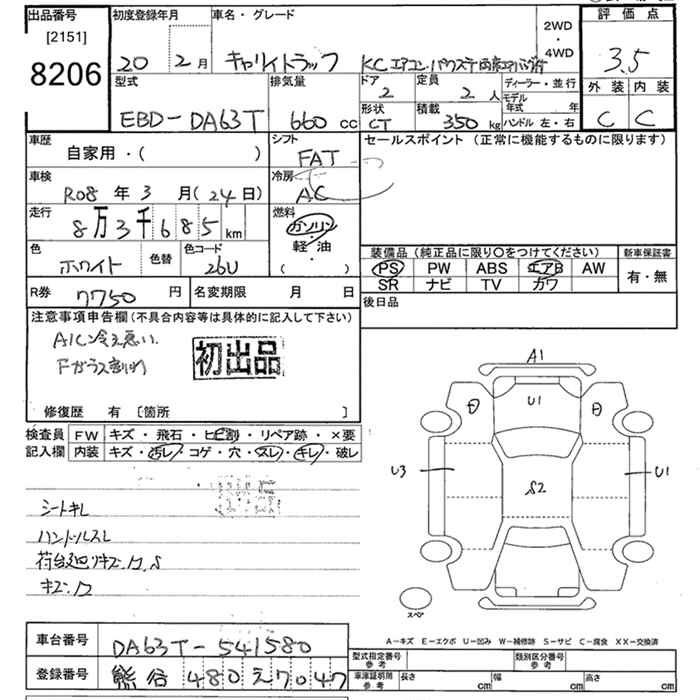 出品番号
[2151]
8206
初度登録年月
20 2月
車名・グレード
キャリイトラック KCエアコン・パワステ
2WD
・
4WD
評価点
3.5
外装 内装
C C
型式
EBD-DA63T
排気量
660 cc
ドア
2
定員
2 人
ディーラー・並行
モデル年式 年
ハンドル 左・右
形状
CT
積載
350 kg
車歴
自家用・( )
シフト
FAT
セールスポイント(正常に機能するものに限ります)
車検
R08 年 3 月(24日)
冷房
AC
走行
8万3千685 km
燃料
ガソリン
・
軽・油
( )
色
ホワイト
色替
色コード
26U
装備品(純正品に限り○をつけてください)
PS PW ABS エアB AW
SR ナビ TV カワ
新車保証書
有・無
R券 7750 円
名変期限 月 日
後日品
注意事項申告欄(不具合内容等は具体的に記入して下さい)
A/C冷え悪い
Fガラス割れ
初出品
修復歴 有 [箇所 ]
検査員
記入欄
FW キズ・飛石・ヒビ割・リペア跡・×要
内装 キズ・汚レ・コゲ・穴・スレ・キレ・破レ
シートキレ
ハンドルスレ
荷台廻りキズ.ワ.S
キズ.ワ
A1
U1
U3
U1
S2
スペア
A-キズ E-エクボ U-凹み W-補修跡 S-サビ C-腐食 XX-交換済
車台番号 DA63T-541580
登録番号 熊谷 480 え 7047
型式指定番号
参考
類別区分番号
参考
車庫証明用
参考
長さ cm 幅 cm 高さ cm